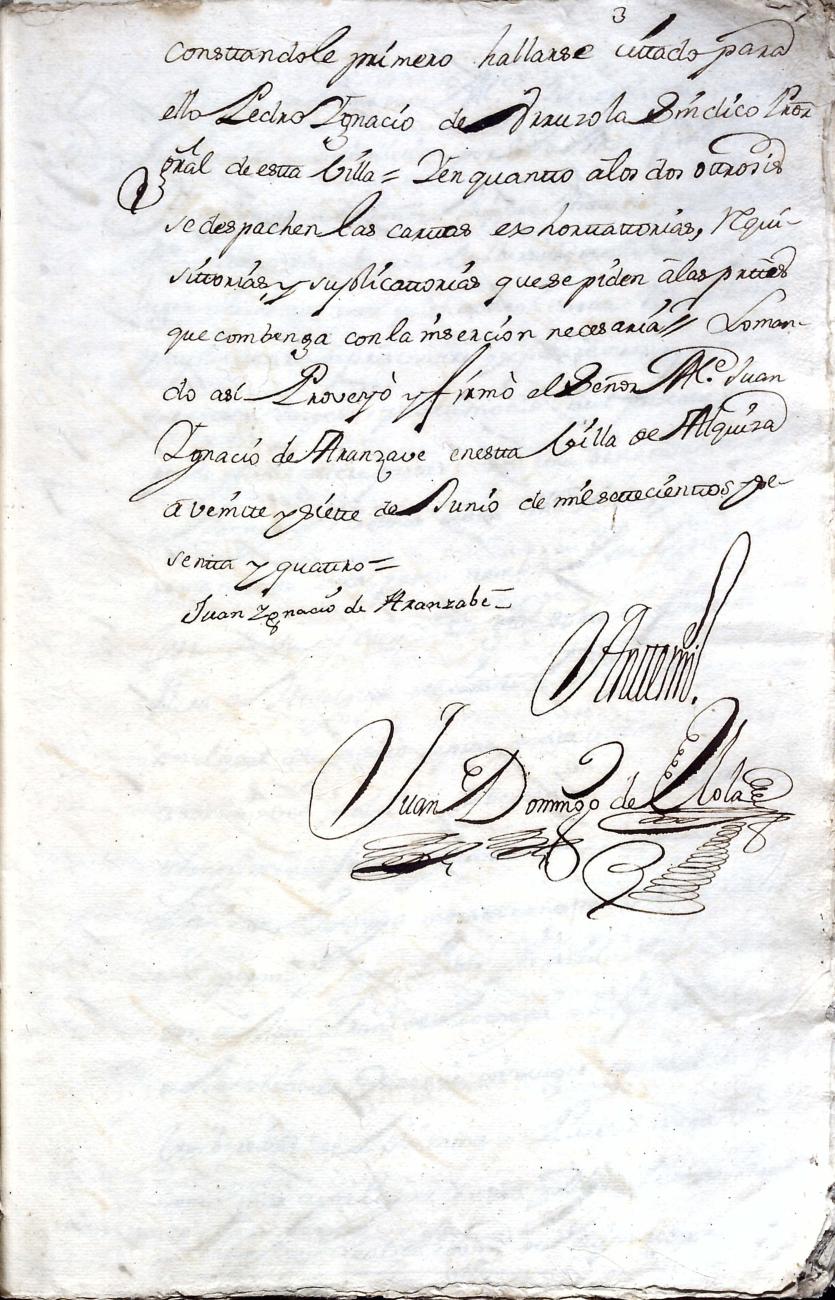 3
Consttandole primero hallarse cittado para
ello Pedro Ygnacio de Urruzola Sindico Pror
gral de estta Villa = Y en quantto a los dos ottrosis
se despachen las carttas exhorttattorias, requi-
sittorias, y suplicattorias que se piden â las prttes
que combenga con la insercion necesaria // Lo man-
do asi Proveyò y firmò el Señor Alc.e Juan
Ygnacio de Aranzave en estta Villa de Alquiza
a veintte y siette de Junio de mil settecienttos y se-
sentta y quattro =
Juan Ygnacio de Aranzabe
Antte mi.
Juan Domingo de